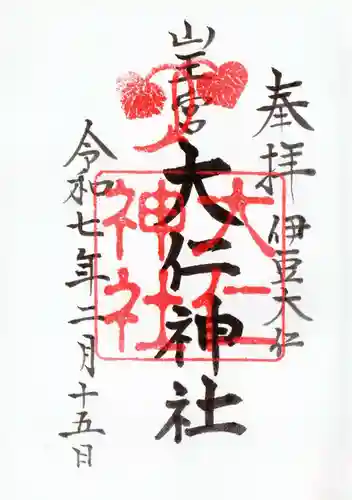 奉拝 伊豆大仁
山王宮
大仁神社
大仁
神社
令和七年二月十五日